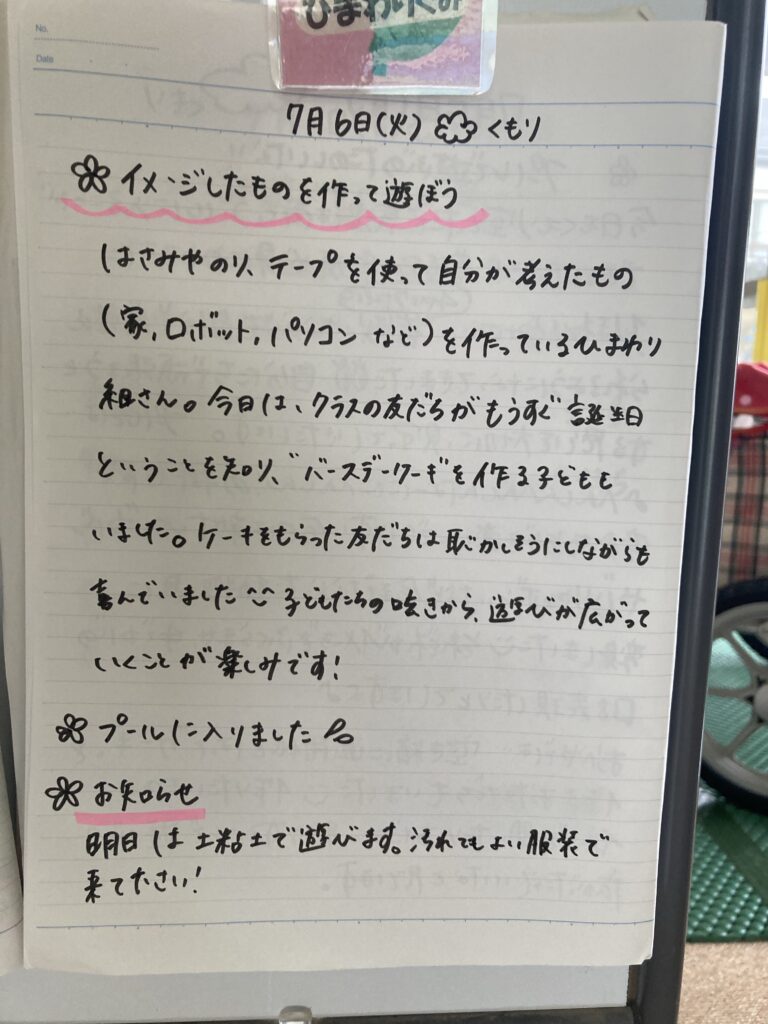 ひまわりぐみ
No.
Date
7月6日(火) くもり
イメージしたものを作って遊ぼう
はさみやのり、テープを使って自分が考えたもの
(家,ロボット,パソコン など)を作っているひまわり
組さん。今日は、クラスの友だちがもうすぐ誕生日
ということを知り、"バースデーケーキ"を作る子ども
いました。ケーキをもらった友だちは恥かしそうにしながらも
喜んでいました^^子どもたちの呟きから、遊びが広がって
いくことが楽しみです!
プールに入りました
お知らせ
明日は土粘土で遊びます。汚れてもよい服装で
来て下さい!